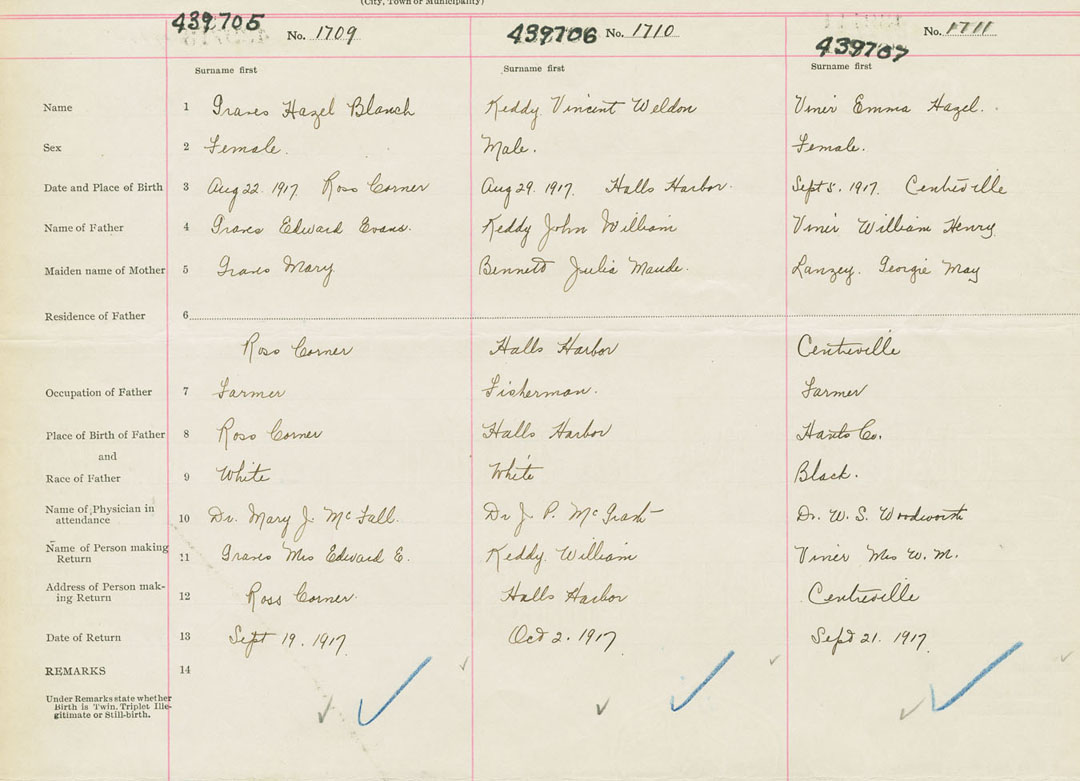 (City, Town or Municipality)
439705 No. 1709 439706 No. 1710 439707 No. 1711
Surname first Surname first Surname first
Name 1 Graves Hazel Blanch Keddy Vincent Weldon Viner Emma Hazel.
Sex 2 Female. Male. Female.
Date and Place of Birth 3 Aug 22. 1917 Ross Corner Aug 29. 1917. Halls Harbor. Sept 5. 1917. Centreville
Name of Father 4 Graves Edward Evans. Keddy John William Viner William Henry
Maiden name of Mother 5 Graves Mary Bennett Julia Maude. Georgie May
Residence of Father 6
Ross Corner Halls Harbor Centreville
Occupation of Father 7 Farmer Fisherman. Farmer
Place of Birth of Father 8 Ross Corner Halls Harbor Hants Co.
and
Race of Father 9 White White Black.
Name of Physician in
attendance 10 Dr. Mary J. Dr J. P. McGrath Dr. W. S. Woodworth
Name of Person making
Return 11 Graves Mrs Edward E. Keddy. William Viner Mrs W. M.
Address of Person mak-
ing Return 12 Ross Corner. Halls Harbor Centreville
Date of Return 13 Sept 19. 1917. Oct 2. 1917. Sept 21. 1917.
REMARKS 14
Under Remarks state whether
Birth is Twin, Triplet Ille-
gitimate or Still-birth.